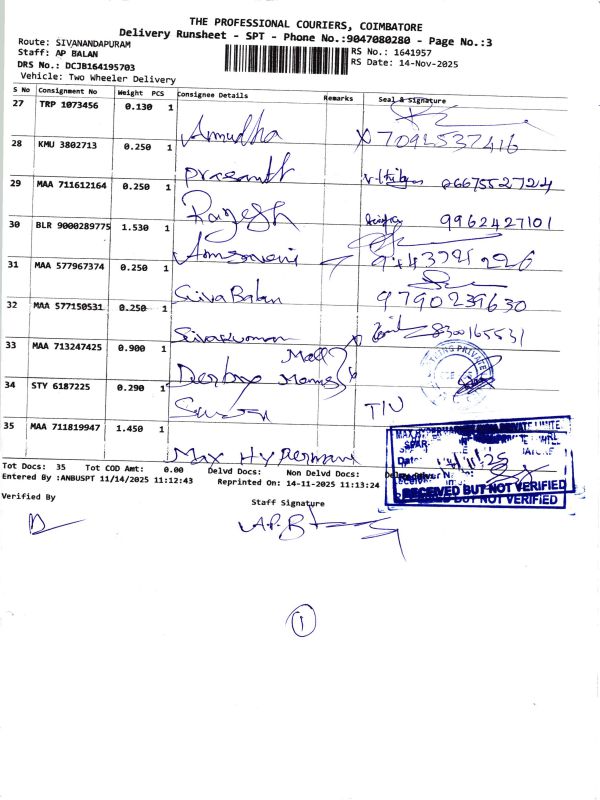 THE PROFESSIONAL COURIERS, COIMBATORE
Delivery Runsheet - SPT - Phone No.:9047080280 - Page No.:3
Route: SIVANANDAPURAM
Staff: AP BALAN
DRS No.: DCJB164195703
Vehicle: Two Wheeler Delivery
RS No.: 1641957
RS Date: 14-Nov-2025
S No Consignment No Weight PCS Consignee Details Remarks Seal & Signature
27 TRP 1073456 0.130 1 Amudha 7092537416
28 KMU 3802713 0.250 1 Prasanth
29 MAA 711612164 0.250 1 Rajesh 9962427101
30 BLR 9000289775 1.530 1
31 MAA 577967374 0.250 1 Siva Balan 9790239630
32 MAA 577150531 0.250 1 Sivakumar 8300165531
33 MAA 713247425 0.900 1
34 STY 6187225 0.290 1
35 MAA 711819947 1.450 1 Max Hypermark
RECEIVED BUT NOT VERIFIED
Tot Docs: 35 Tot COD Amt: 0.00 Delvd Docs: Non Delvd Docs:
Entered By :ANBUSPT 11/14/2025 11:12:43 Reprinted On: 14-11-2025 11:13:24
Verified By
Staff Signature
A.P.B
1